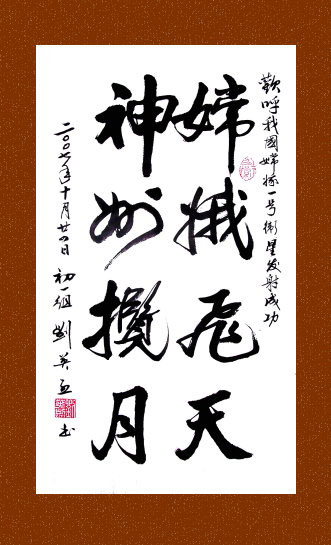 歡呼我國嫦娥一号衛星发射成功
嫦娥飛天
神州攬月
二〇〇七年十月廿日 初一组 劉英书